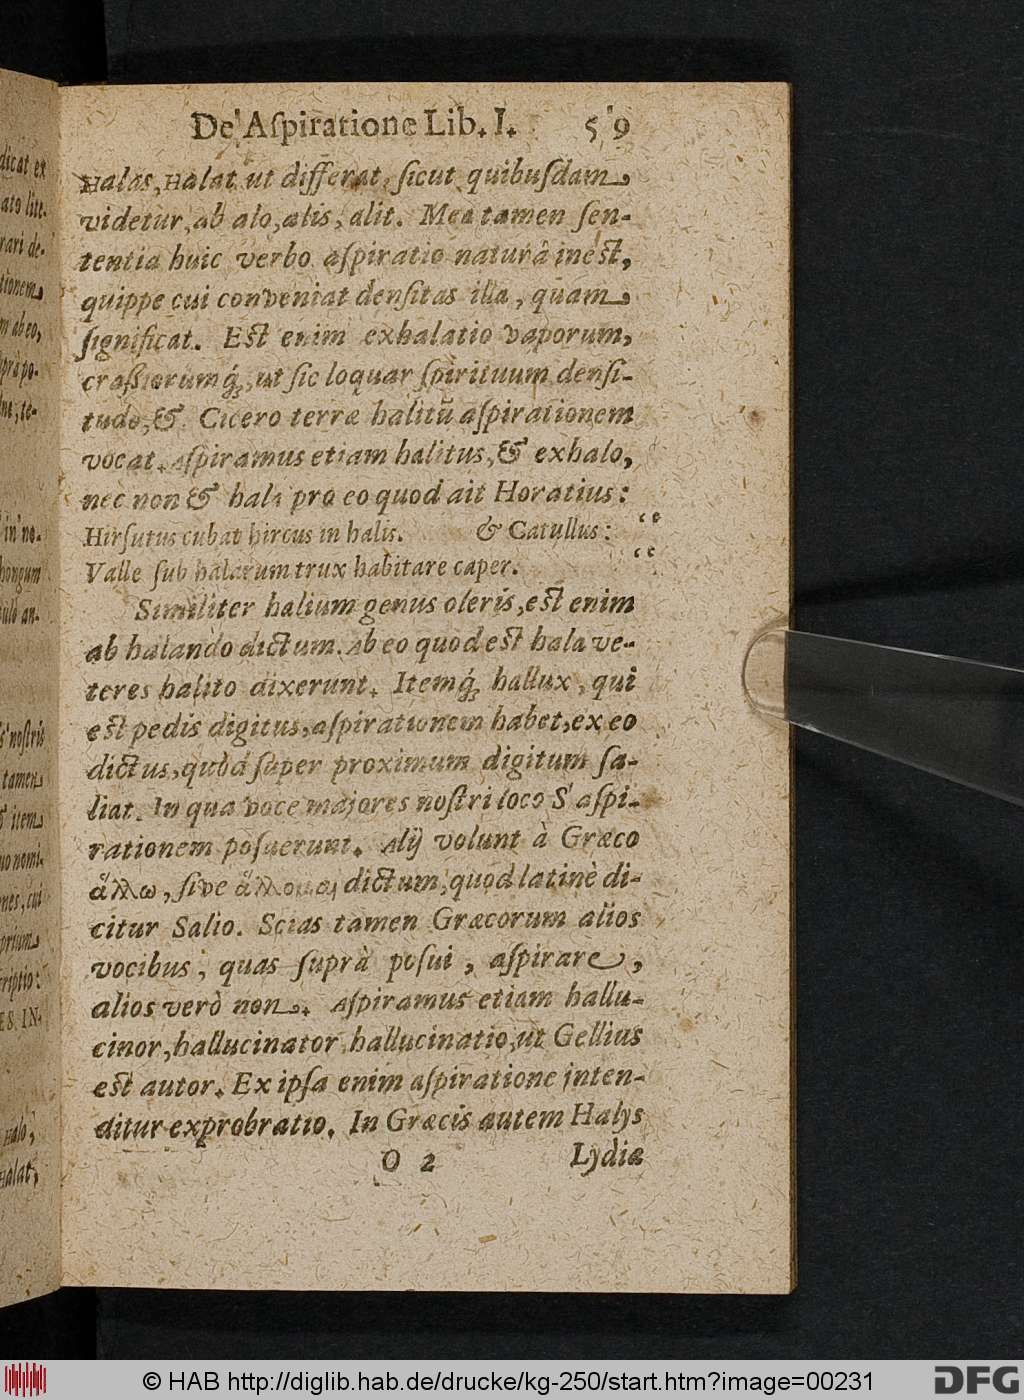 De Aſpiratione Lib. I. 59
Halas, Halat ut differat, ſicut quibuſdam
videtur, ab alo, alis, alit. Mea tamen ſen-
tentia huic verbo aſpiratio naturâ ineſt,
quippe cui conveniat denſitas illa, quam
ſignificat. Eſt enim exhalatio vaporum,
craßiorumq́;, ut ſic loquar ſpirituum denſi-
tudo, & Cicero terræ halitũ aſpirationem
vocat. Aſpiramus etiam halitus, & exhalo,
nec non & hala pro eo quod ait Horatius:
Hirſutus cubat hircus in halis. & Catullus: “
Valle ſub halarum trux habitare caper. “
Similiter halium genus oleris, eſt enim
ab halando dictum. Ab eo quod eſt hala ve-
teres halito dixerunt. Itemq́; hallux, qui
eſt pedis digitus, aſpirationem habet, ex eo
dictus, quòd ſuper proximum digitum ſa-
liat. In qua voce majores noſtri loco S aſpi-
rationem poſuerunt. Alij volunt à Græco
ἅλλω, ſive ἅλλομαι dictum, quod latinè di-
citur Salio. Scias tamen Græcorum alios
vocibus, quas ſuprà poſui, aſpirare,
alios verò non. Aſpiramus etiam hallu-
cinor, hallucinator, hallucinatio, ut Gellius
eſt autor. Ex ipſa enim aſpiratione inten-
ditur exprobratio. In Græcis autem Halys
O 2 Lydiæ
dicat ex
ato litt-
rari de-
tionem
m ab eo,
uprà po-
in no-
hongum
noſtris
tamen
& item
uo nomi-
nes, cui
prium
criptio:
ES. IN-
Halo,
Halat,
© HAB http://diglib.hab.de/drucke/kg-250/start.htm?image=00231
DFG